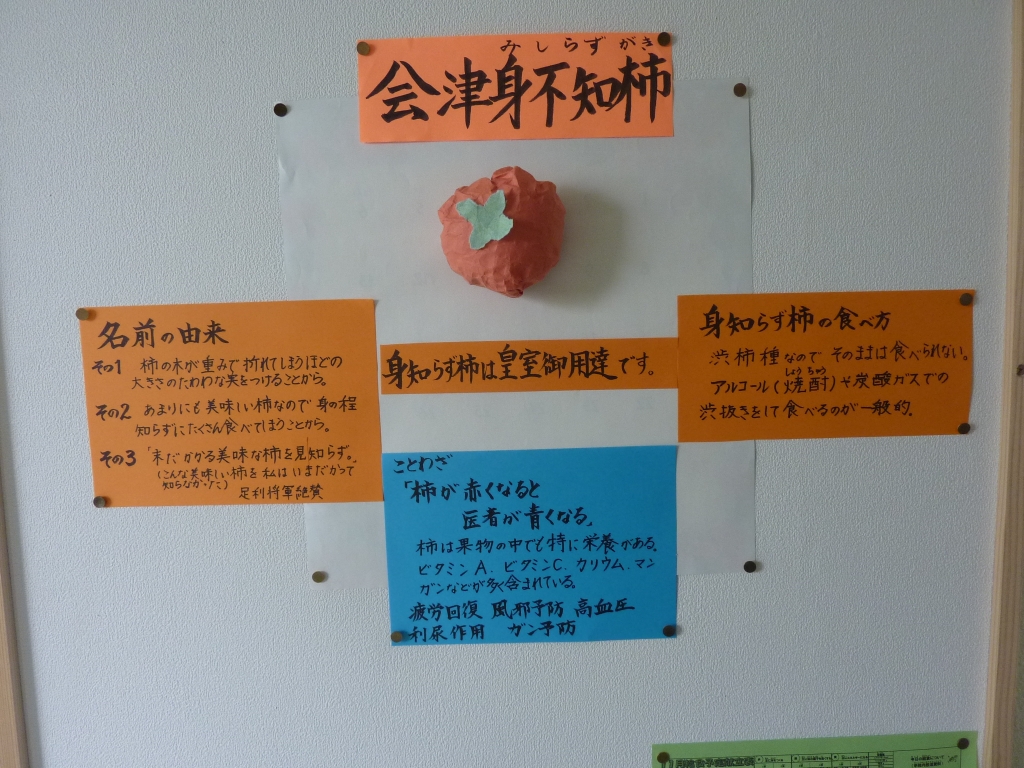 みしらずがき
会津身不知柿
名前の由来
その1 柿の木が重みで折れてしまうほどの
大きさのたわわな実をつけることから。
その2 あまりにも美味しい柿なので身の程
知らずにたくさん食べてしまうことから。
その3 「未だかかる美味な柿を見知らず。」
(こんな美味しい柿を私はいまだかつて
知らなかった)
足利将軍絶賛
身知らず柿は皇室御用達です。
身知らず柿の食べ方
渋柿種なのでそのままは食べられない。
しょうちゅう
アルコール(焼酎)や炭酸ガスでの
渋抜きをして食べるのが一般的.
ことわざ
「柿が赤くなると
医者が青くなる」
柿は果物の中でも特に栄養がある。
ビタミンA、ビタミンC、カリウム、マン
ガンなどが多く含まれている。
疲労回復 風邪予防 高血圧
利尿作用 ガン予防